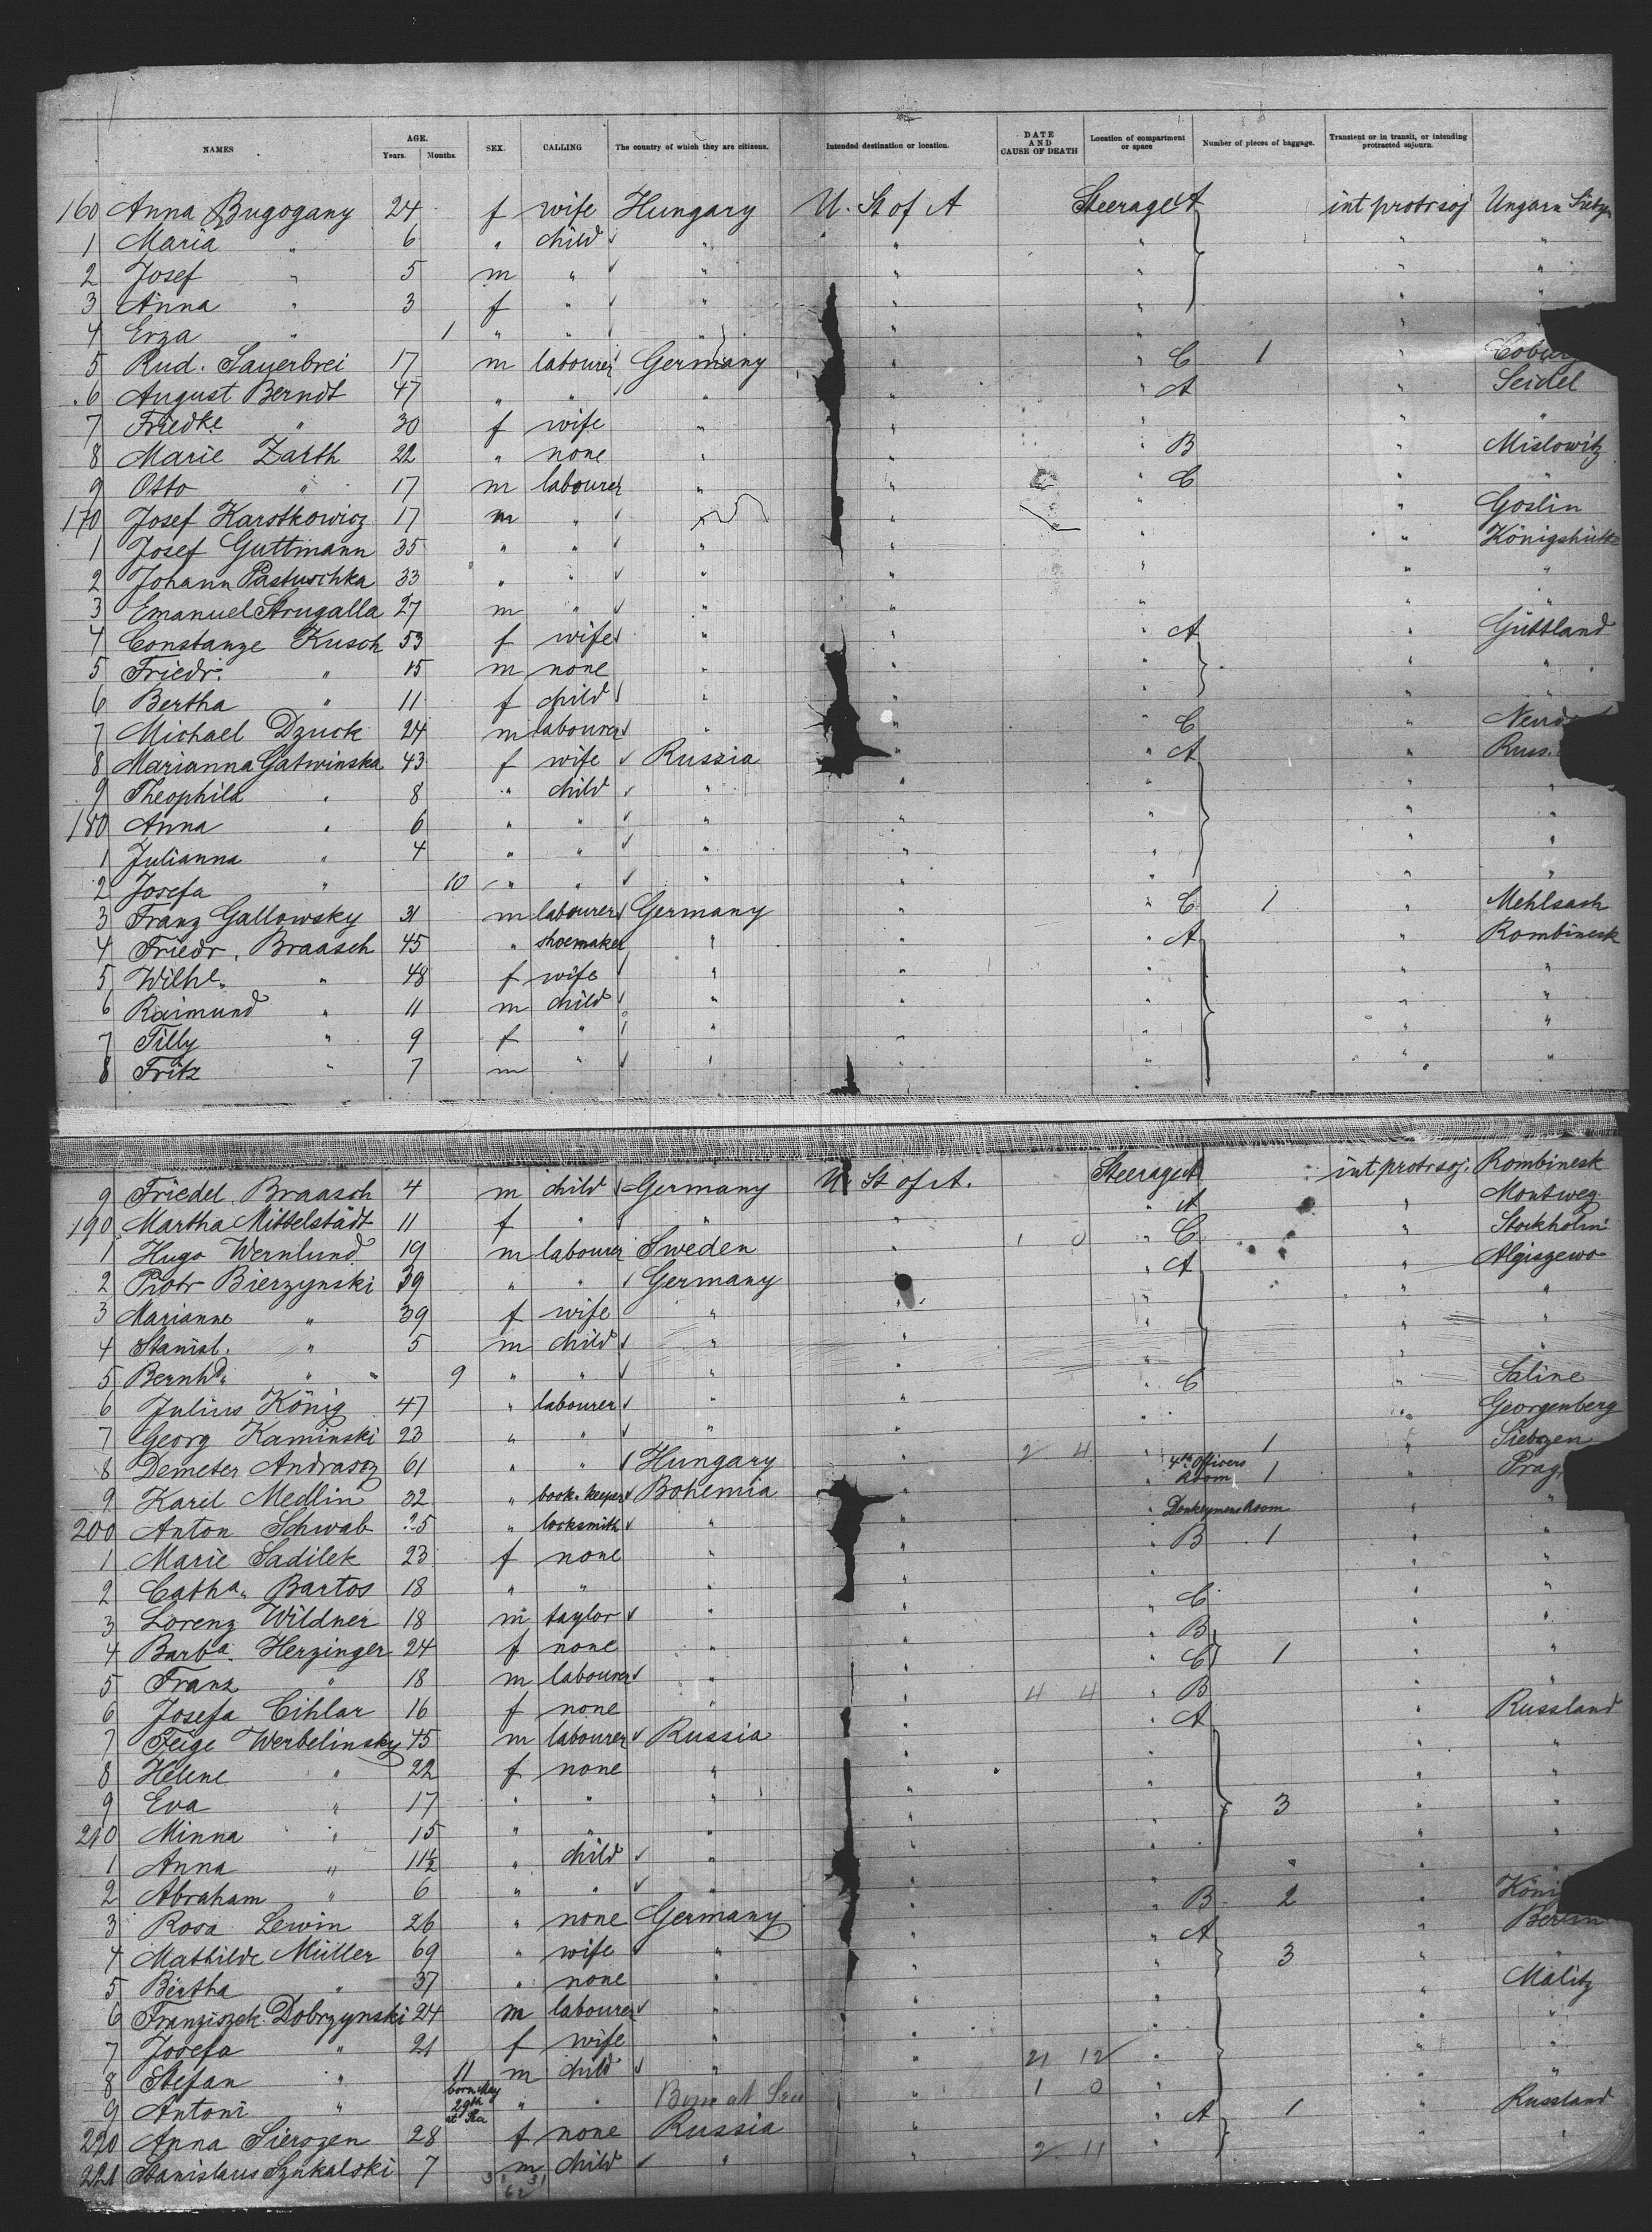 NAMES AGE. Years. Months. SEX. CALLING The country of which they are citizens. Intended destination or location. DATE AND CAUSE OF DEATH Location of compartment or space Number of pieces of baggage. Transient or in transit, or intending protracted sojourn.
160 Anna Bugogany 24 f wife Hungary U. St of A Steerage A int protr soj Ungarn
1 Maria " 6 " child " " " " "
2 Josef " 5 m " " " " " "
3 Anna " 3 f " " " " " "
4 Erza " 1 " " " " " "
5 Rud. Sauerbrei 17 m labourer Germany " " C 1 " Coburg
6 August Berndt 47 " " " " " A " Seidel
7 Friedke " 30 f wife " " " " "
8 Marie Zarth 22 " none " " " B " Mislowitz
9 Otto " 17 m labourer " " " C " "
170 Josef Karstkowicz 17 m " " " " " Goslin
1 Josef Guttmann 35 " " " " " " Königshütte
2 Johann Pastuschka 33 " " " " " " "
3 Emanuel Strugalla 27 m " " " " " "
4 Constanze Kusch 53 f wife " " " A " Güttland
5 Friedr. " 15 m none " " " " "
6 Bertha " 11 f child " " " " "
7 Michael Dzuck 24 m labourer " " " C "
8 Marianna Gatwinska 43 f wife Russia " " A " Russ.
9 Theophila " 8 " child " " " " "
180 Anna " 6 " " " " " " "
1 Julianna " 4 " " " " " " "
2 Josefa " 10 " " " " " " "
3 Franz Gallowsky 31 m labourer Germany " " C 1 " Mehlsach
4 Friedr. Braasch 45 " shoemaker " " " A " Rombinesk
5 Wilhe. " 48 f wife " " " " "
6 Raimund " 11 m child " " " " "
7 Tilly " 9 f " " " " " "
8 Fritz " 7 m " " " " " "
9 Friedel Braasch 4 m child Germany U. St of A. Steerage A int protr soj. Rombinesk
190 Martha Mittelstädt 11 f " " " " A " Montweg
1 Hugo Wernlund 19 m labourer Sweden " 1 0 " C " Stockholm
2 Piotr Bierzynski 39 " " Germany " " A "
3 Marianne " 39 f wife " " " " "
4 Stanisl. " 5 m child " " " " "
5 Bernhd. " " 9 " " " " " " "
6 Julius König 47 " labourer " " " C " Saline
7 Georg Kaminski 23 " " " " " " Georgenberg
8 Demeter Andrasoz 61 " " Hungary " 2 4 " 1 "
9 Karel Medlin 32 " book-keeper Bohemia " " 4th Officers Room 1 " Prag
200 Anton Schwab 25 " locksmith " " " Donkeymens Room " "
1 Marie Sadilek 23 f none " " " B 1 " "
2 Catha. Bartos 18 " " " " " " "
3 Lorenz Wildner 18 m taylor " " " C " "
4 Barba. Herzinger 24 f none " " " B " "
5 Franz " 18 m labourer " " " C 1 " "
6 Josefa Cihlar 16 f none " " 4 4 " B " "
7 Feige Werbelinsky 45 m labourer Russia " " A " Russland
8 Helene " 22 f none " " " " "
9 Eva " 17 " " " " " 3 " "
210 Minna " 15 " " " " " " "
1 Anna " 11½ " child " " " " "
2 Abraham " 6 " " " " " "
3 Rosa Lewin 26 " none Germany " " B 2 "
4 Mathilde Müller 69 " wife " " " A " Berlin
5 Bertha " 37 " none " " " 3 " "
6 Franziszek Dobrzynski 24 m labourer " " " " Malitz
7 Josefa " 21 f wife " " " " "
8 Stefan " 11 m child " " 21 12 " " "
9 Antoni " born May 29th at Sea " " Born at Sea " 1 0 " " "
220 Anna Sierszen 28 f none Russia " " A 1 " Russland
221 Stanislaus Szukalski 7 m child " " 2 11 " " "
3 31
62